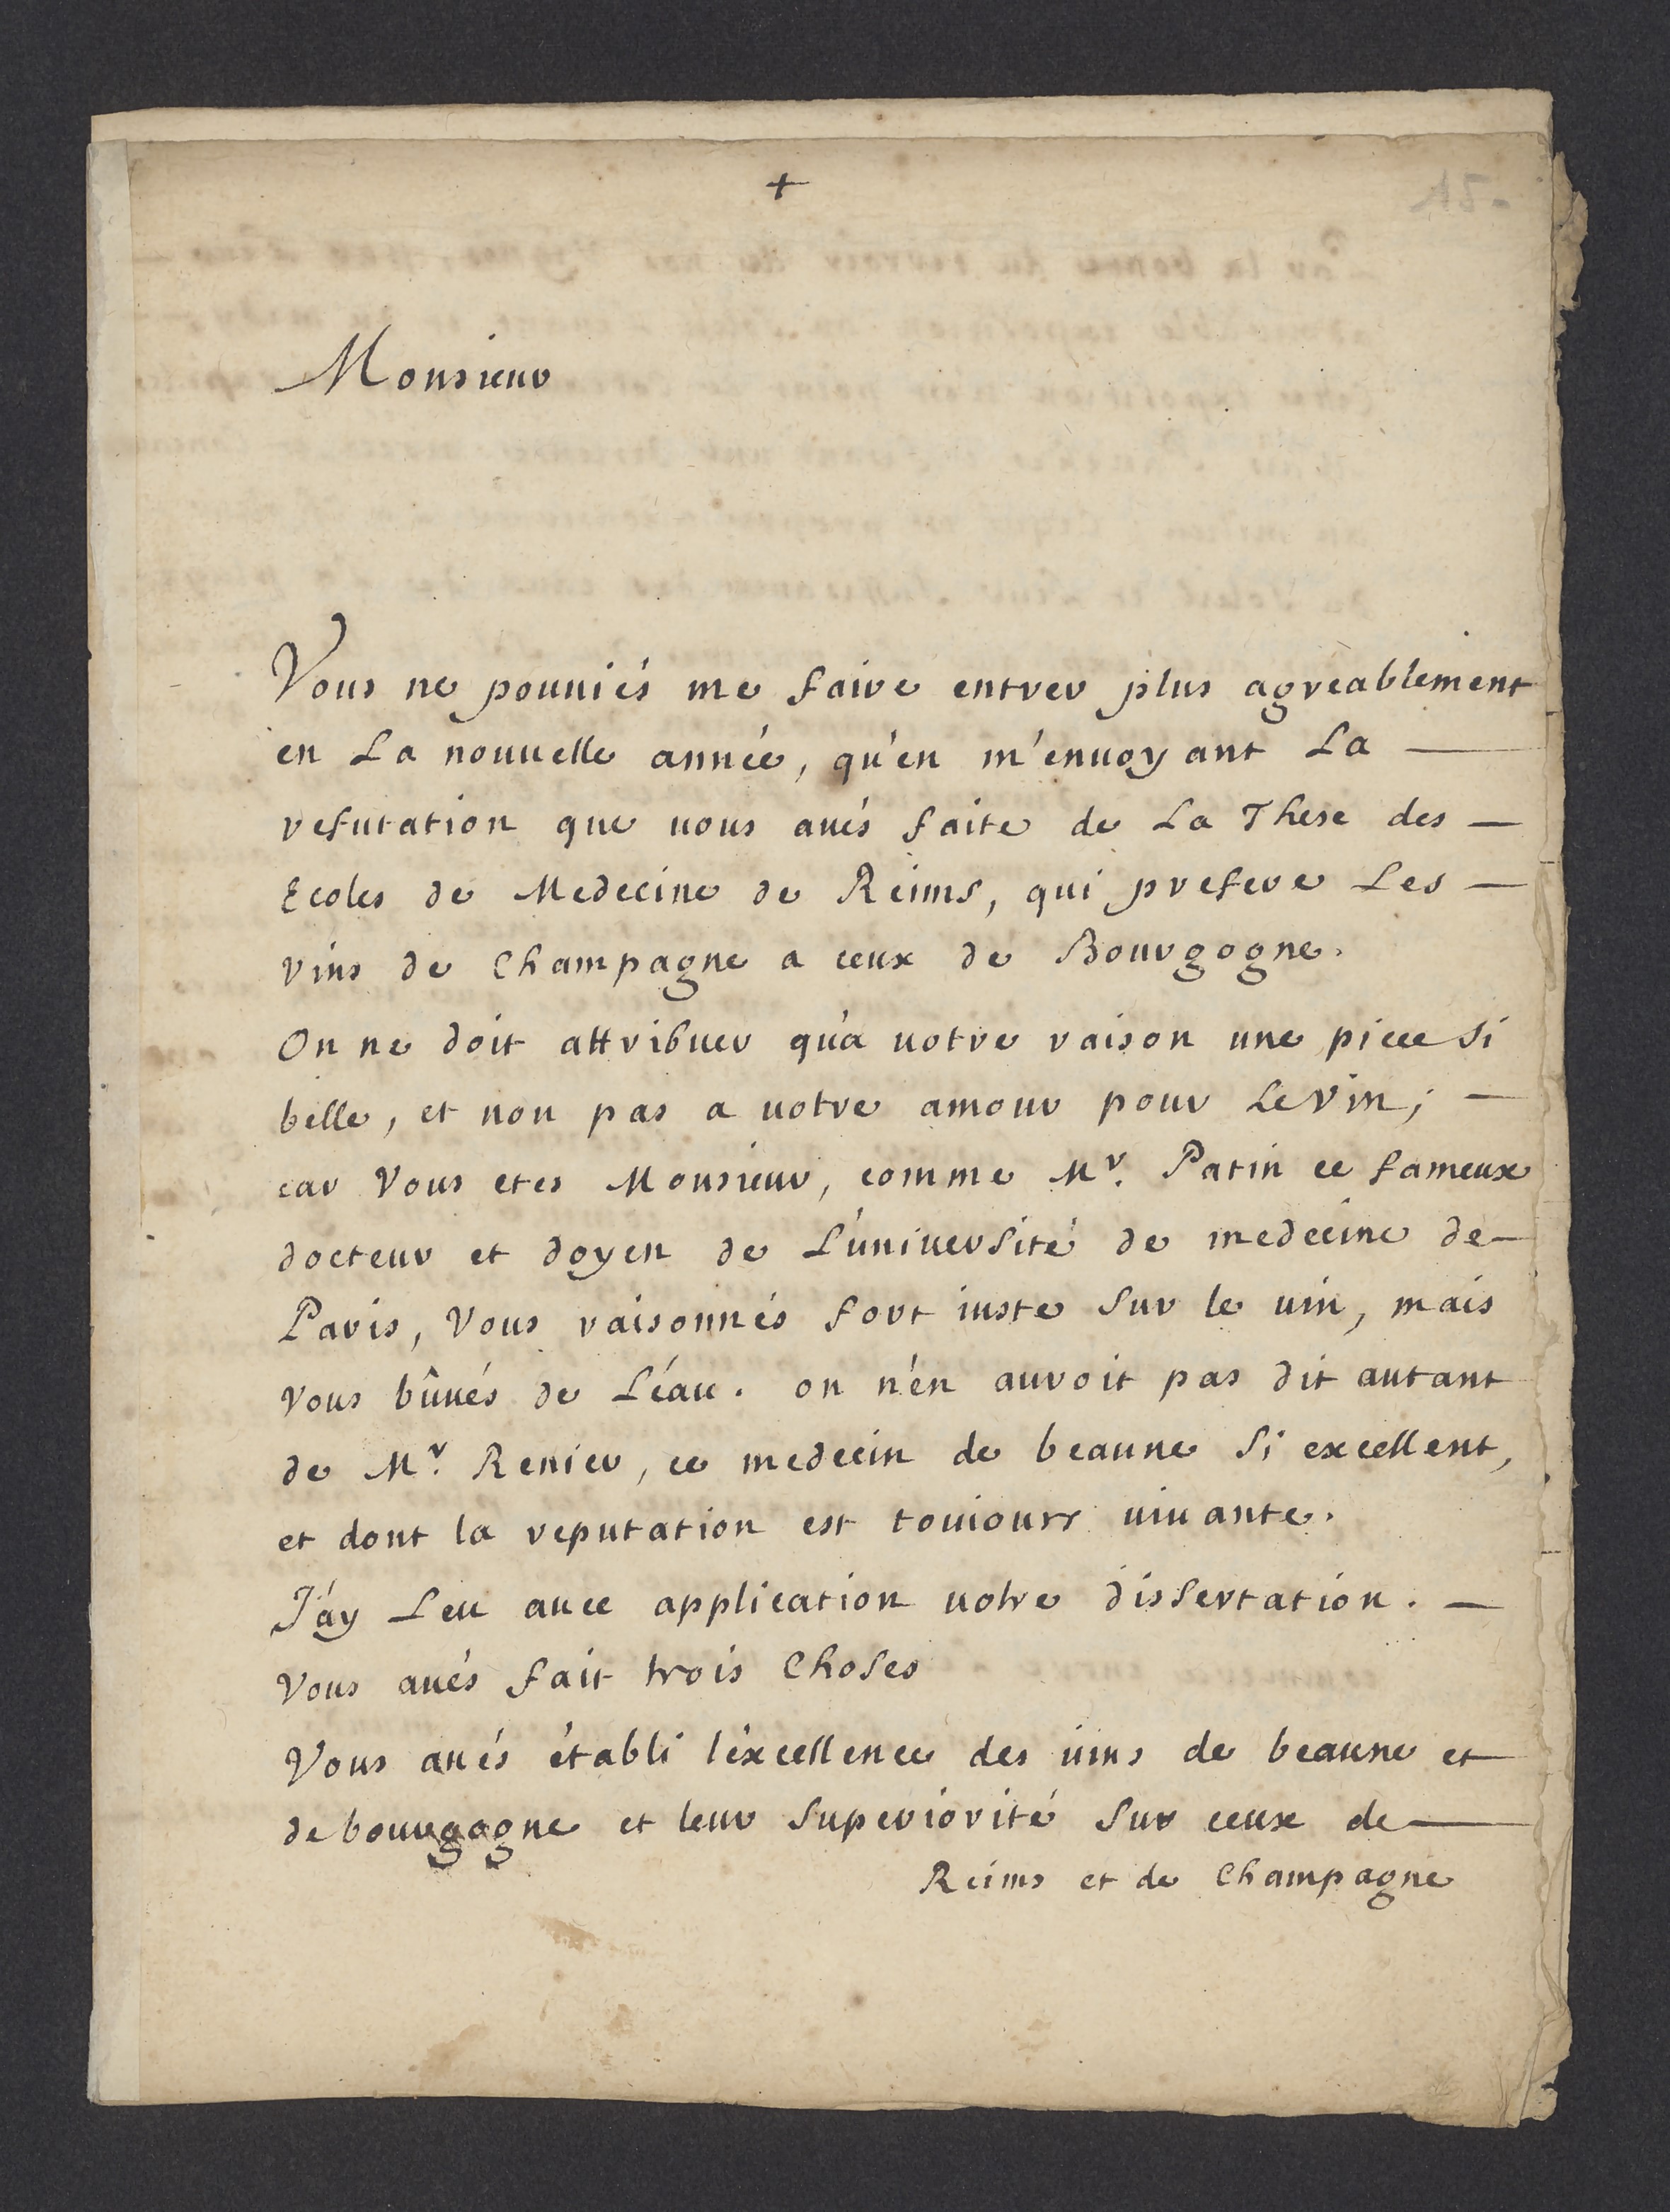 +
Monsieur
Vous ne pouuiés me faire entrer plus agreablement
en La nouuelle année, qu'en m'enuoyant La —
refutation que uous aués faite de La These des —
Ecoles de Medecine de Reims, qui prefere Les —
vins de Champagne a ceux de Bourgogne.
On ne doit attribuer qu'a uotre raison une piece si
belle, et non pas a uotre amour pour Le vin; —
car Vous etes Monsieur, comme Mr. Patin ce fameux
docteur et doyen de L'uniuersité de medecine de —
Paris, Vous raisonnés fort iuste sur le uin, mais
vous bûués de L'éau. on n'en auroit pas dit autant
de Mr. Renier, ce medecin de beaune si excellent,
et dont la reputation est touiours uiuante.
J'ay Leu auec application uotre dissertation. —
Vous aués fait trois Choses
Vous aués établi l'éxcellence des uins de beaune et
de bourgogne et leur superiorité sur ceux de —
Reims et de Champagne